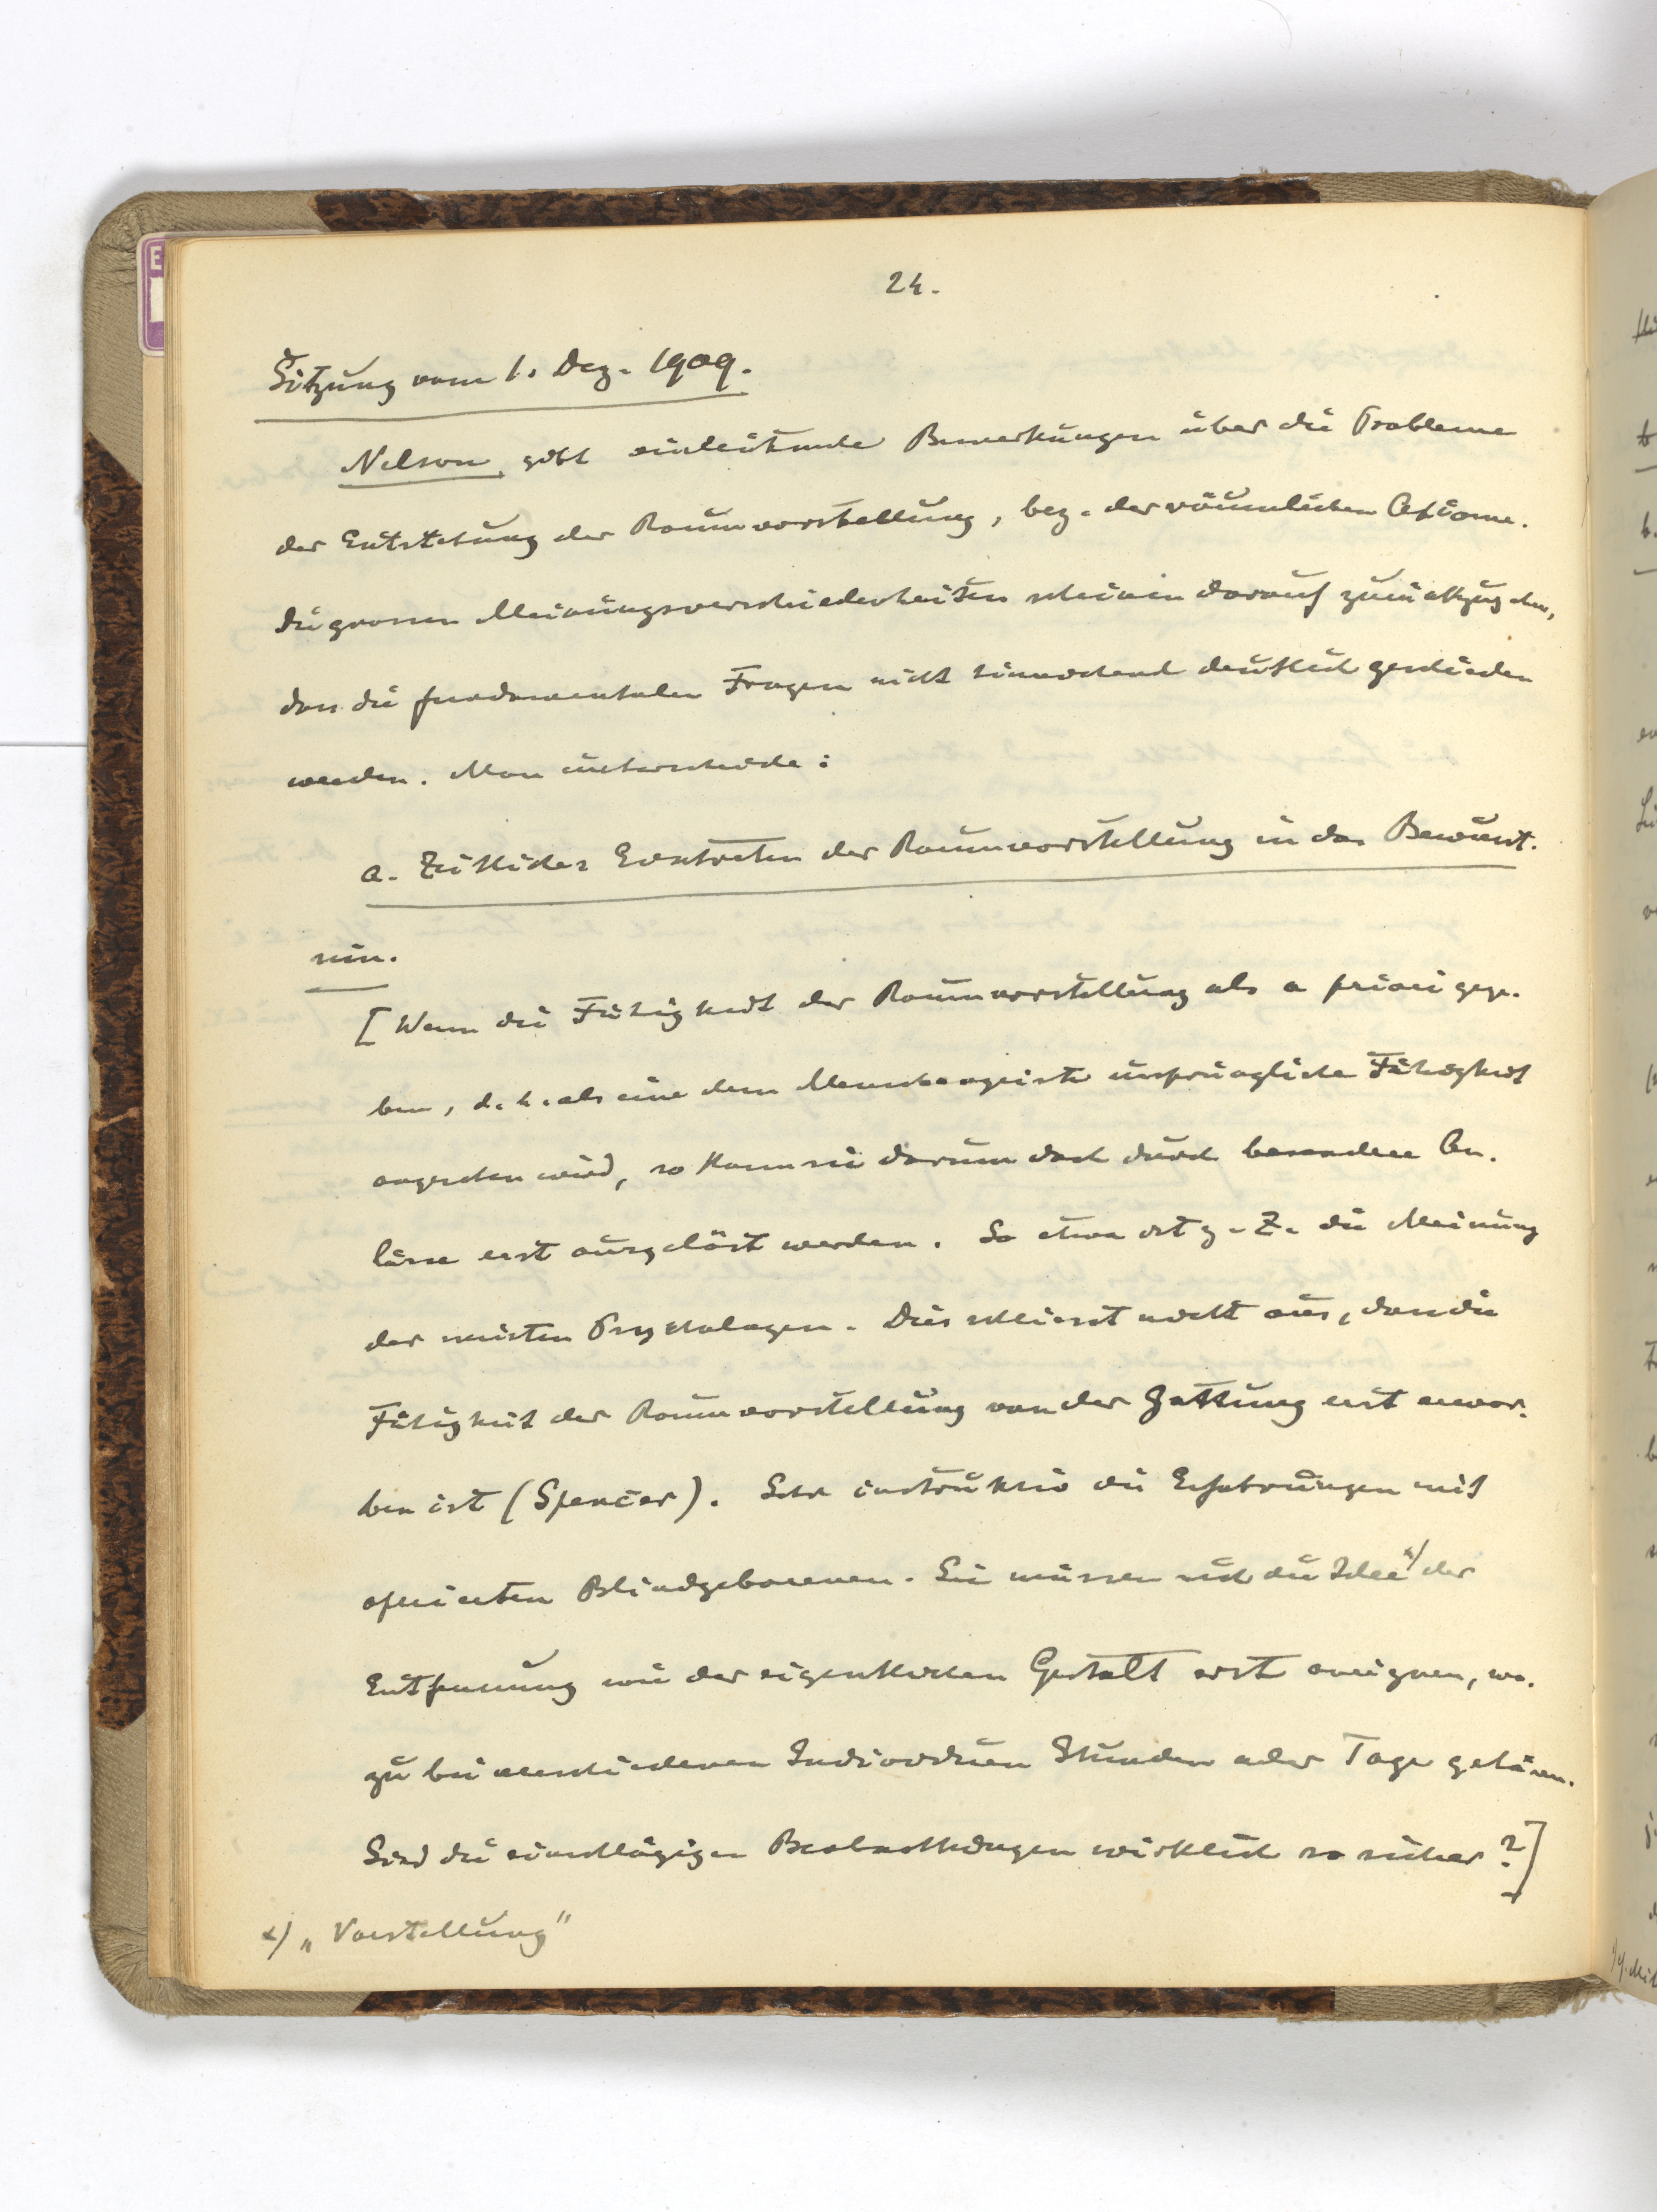 24.
Sitzung vom 1. Dez. 1909.
Nelson gibt einleitende Bemerkungen über die Probleme
der Entstehung der Raumvorstellung, bez. der räumlichen Axiome.
Die grossen Meinungsverschiedenheiten scheinen darauf zurückzugehen,
dass die fundamentalen Fragen nicht hinreichend deutlich geschieden
werden. Man unterscheide:
a. Zeitliches Eintreten der Raumvorstellung in das Bewusst-
sein.
[Wenn die Fähigkeit der Raumvorstellung als a priori gege-
ben, d.h. als eine dem Menschengeiste ursprüngliche Fähigkeit
angesehen wird, so kann sie darum doch durch besondere An-
lässe erst ausgelöst werden. So etwa ist z. Z. die Meinung
der meisten Psychologen. Dies schliesst nicht aus, dass die
Fähigkeit der Raumvorstellung von der Gattung erst erwor-
ben ist (Spencer). Sehr instruktiv die Erfahrungen mit
operierten Blindgeborenen. Sie müssen sich die Idee x) der
Entfernung wie der eigentlichen Gestalt erst aneignen, wo-
zu bei verschiedenen Individuen Stunden oder Tage gehören.
Sind die einschlägigen Beobachtungen wirklich so sicher?]
x) „Vorstellung"